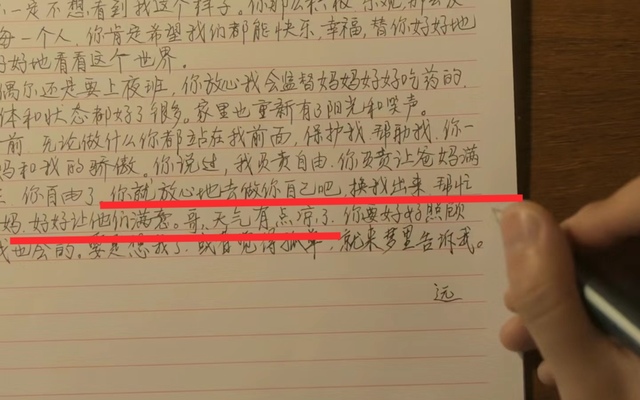 一定不想看到我这个样子。你那么积极 乐观
每一个人，你肯定希望我们都能快乐，幸福，替你好好地
好好地看看这个世界。
偶尔还是要上夜班，你放心我会监督妈妈好好吃药的.
体和状态都好了很多。家里也重新有了阳光和笑声。
前 无论做什么你都站在我前面，保护我 帮助我.你一
妈和我的骄傲。你说过，我负责自由.你负责让爸妈满
你自由了 你就放心地去做你自己吧，换我出来 帮忙
妈.好好让他们满意。哥、天气有点凉了.你要好好照顾
我也会的.要是想我了.或者觉得孤单.就来梦里告诉我。
远